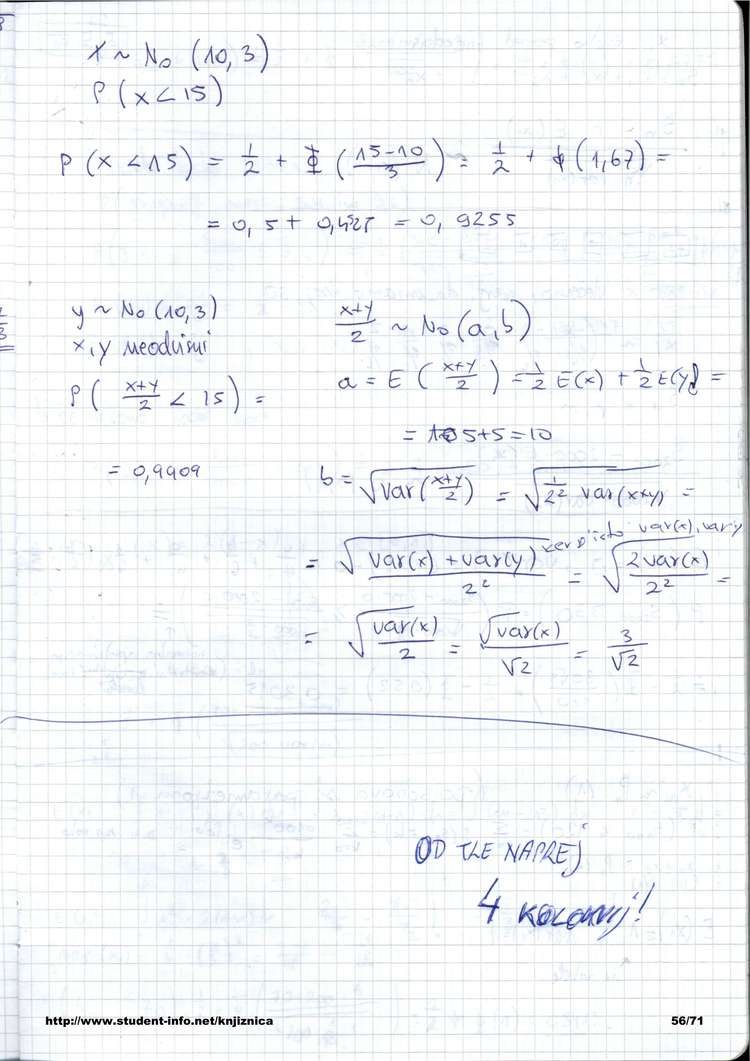 x ~ No (10,3)
P (x < 15)
P (x < 15) = 1/2 + Φ ((15-10)/3) = 1/2 + Φ (1,67) =
= 0,5 + 0,4525 = 0,9255
y ~ No (10,3)
x, y neodvisni
P ( (x+y)/2 < 15 ) =
= 0,9909
(x+y)/2 ~ No (a,b)
a = E ( (x+y)/2 ) = 1/2 E(x) + 1/2 E(y) =
= 5+5 = 10
b = √(var((x+y)/2)) = √(1/2² var(x+y)) =
= √((var(x) + var(y))/2²) = √(2var(x)/2²) =
ker sta var(x), var y
= √(var(x)/2) = √var(x)/√2 = 3/√2
OD TLE NAPREJ
4 KOLOKVIJ!
http://www.student-info.net/knjiznica
56/71